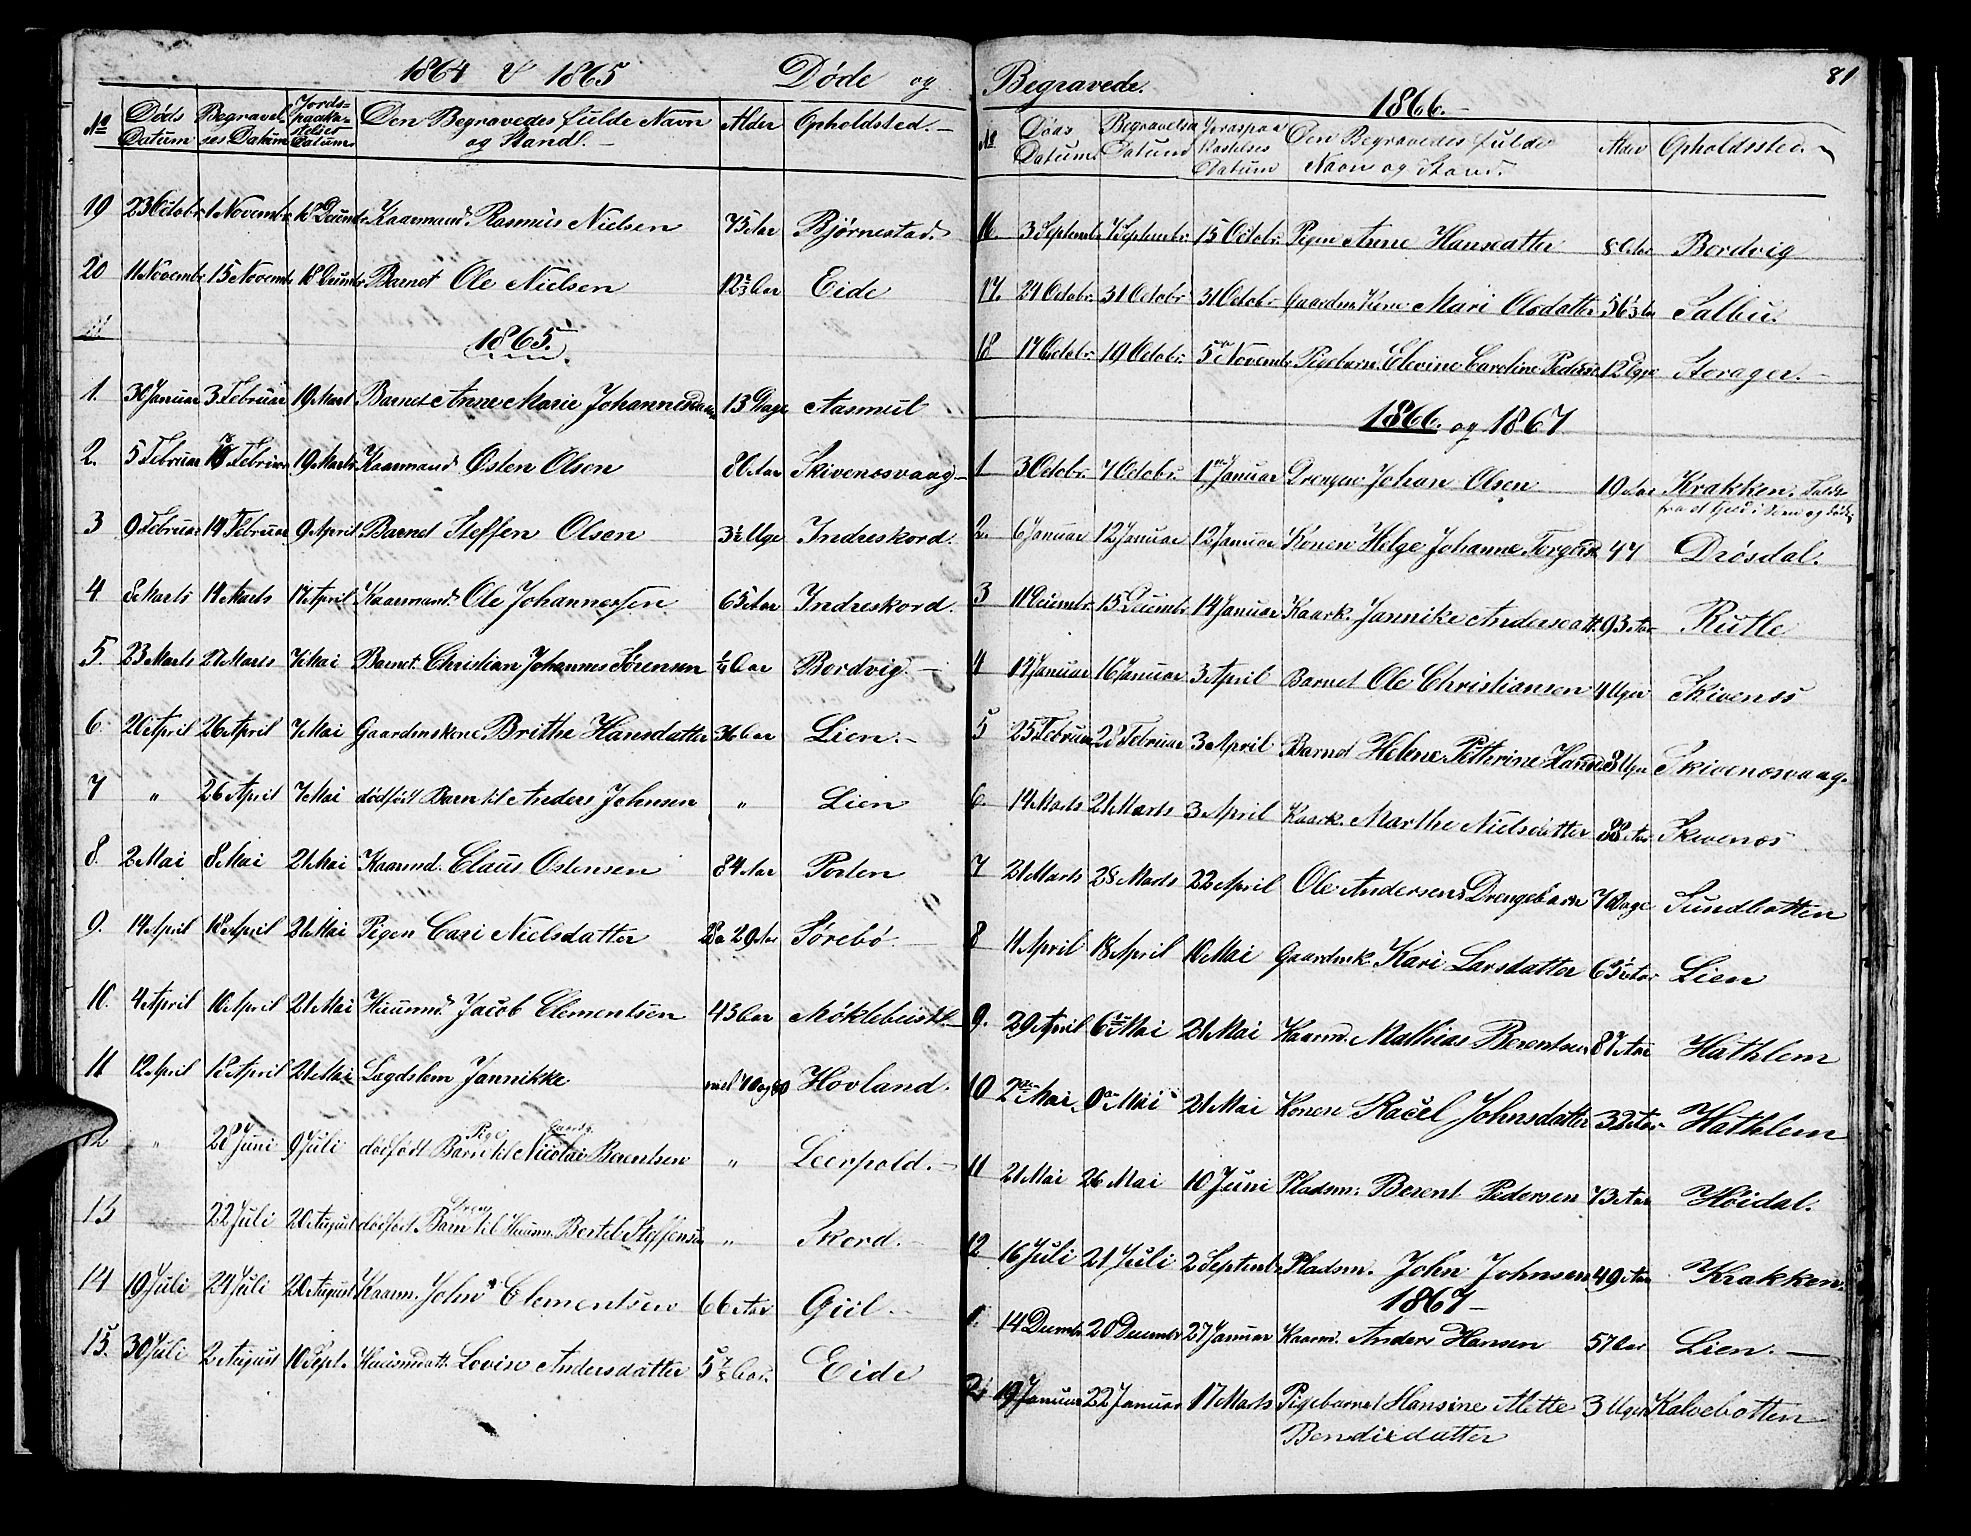 1864 & 1865 Døde og
No Døds Datum Begravelses Datum Jordspaakastelses Datum Den Begravedes fulde Navn og Stand. Alder Opholdsted.
19 23 Octobr. 1 Novembr. 18 Decembr. Kaarmand Rasmus Nielsen 75 Aar Bjørnestad.
20 11 Novembr 15 Novembr 18 Decembr Barnet Ole Nielsen 12 2/3 Aar Eide
1865.
1. 30 Januar 3 Februar 19 Marts Barnet Anne Marie Johannesdatter 13 Dage Aasmul
2. 5 Februar Februar 19 Marts Kaarmand Østen Olsen 80 Aar Skivenosvaag
3 9 Februar 14 Februar 9 April Barnet Steffen Olsen 3½ Uge Indreskord.
4 8 Marts 14 Marts 17 April Kaarmand Ole Johannessen 65 Aar Indreskord.
5. 23 Marts 27 Marts 7 Mai Barnet Christian Johannes Sørensen ¼ Aar Bordvig
6. 20 April 26 April 7 Mai Gaardmskone Brithe Hansdatter 36 Aar Lien.
7 " 26 April 7 Mai dødfødt Barn til Anders Johnsen " Lien
8. 2 Mai 8 Mai 21 Mai Kaarmd. Claus Ostensen 84 Aar Porten
9. 14 April 18 April 21 Mai Pigen Cari Nielsdatter 29 Aar Sørebø.
10. 4 April 10 April 21 Mai Huusmd. Jacob Clementsen 43 Aar Møklebust
11 12 April 18 April 21 Mai Lægdslem Jannikke mel 70 og 80 Hovland.
12 " 28 Juni 9 Juli dødfødt Pige Barn til Gaardg. Nicolai Berentsen " Leerpold.
13 22 Juli 20 August dødfødt Dreng Barn til Huusm. Bertel Steffensen " Skord.
14 19 Juli 24 Juli 20 August Kaarm. John Clementsen 66 Aar Giil.
15. 30 Juli 2 August 10 Sept. Huusmdatt. Lovise Andersdatter 5 Aar. Eide
Begravede. 81
1866.
No Døds Datum Begravelses Datum Jordspaakastelses Datum Den Begravedes fulde Navn og Stand. Alder Opholdssted.
16 3 Septembr 7 Septembr. 15 Octobr. Pigen Anne Hansdatter 8 Aar Bordvig
17. 21 Octobr. 31 Octobr 31 Octobr Gaardms Kone Mari Olsdatter Salbu.
18 17 Octobr. 19 Octobr. 5 Novembr. Pigebarn. Elevine Caroline Peders 12 Uger Storager.
1866. og 1867
1 3 Octobr. 7 Octobr. 1 Januar Drengen Johan Olsen 19 Aar Krakken.
2. 6 Januar 12 Januar 12 Januar Konen Helge Johanne Torgeirs 47 Drøsdal.
3 11 Decembr. 15 Decembr. 14 Januar Kaark. Jannike Andersdatt. 93 Aar Rutle
4 12 Januar 16 Januar 3 April Barnet Ole Christiansen 4 Uger Skivenos
5 25 Februar 28 Februar 3 April Barnet Helene Petherine Hans 8 Uger Skivenosvaag.
6. 14 Marts 21 Marts 3 April Kaark. Marthe Nielsdatter 88 Aar Skivenos
7 21 Marts 28 Marts 22 April Ole Andersens Drengebarn Dage Sundbotten
8 11 April 18 April 10 Mai Gaardmk. Kari Larsdatter 65 Aar Lien
9. 29 April 6te Mai 21 Mai Kaarmd. Mathias Berentsen 87 Aar Hathlem
10 2den Mai Mai 21 Mai Konen Racel Johnsdatter 32 Aar Hathlem
11 21 Mai 26 Mai 10 Juni Pladsm. Berent Pedersen 73 Aar Høidal.
12 16 Juli 21 Juli 2 Septembr Pladsm. John Johnsen 49 Aar Krakken.
1867
1. 14 Decembr 20 Decembr 27 Januar Kaarmd. Anders Hansen 57 Aar Lien.
2. 19 Januar 22 Januar 17 Marts Pigebarnet Hansine Mette 3 Uger Kalvebotten
Bendixdatter